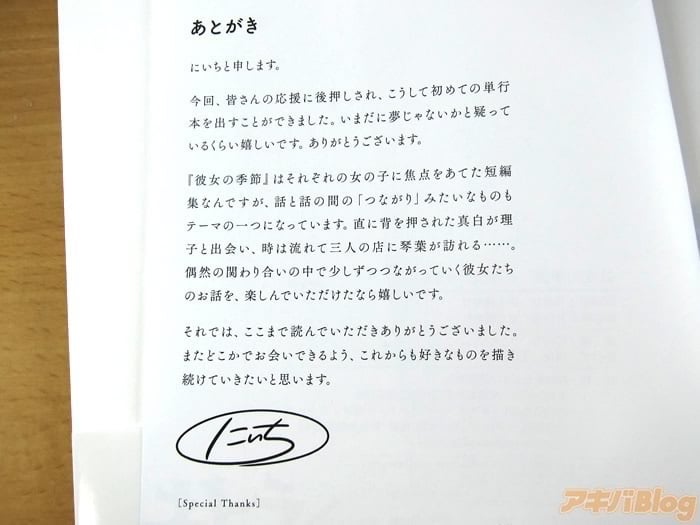 あとがき
にいちと申します。
今回、皆さんの応援に後押しされ、こうして初めての単行
本を出すことができました。いまだに夢じゃないかと疑って
いるくらい嬉しいです。ありがとうございます。
『彼女の季節』はそれぞれの女の子に焦点をあてた短編
集なんですが、話と話の間の「つながり」みたいなものも
テーマの一つになっています。直に背を押された真白が理
子と出会い、時は流れて三人の店に琴葉が訪れる……。
偶然の関わり合いの中で少しずつつながっていく彼女たち
のお話を、楽しんでいただけたなら嬉しいです。
それでは、ここまで読んでいただきありがとうございました。
またどこかでお会いできるよう、これからも好きなものを描き
続けていきたいと思います。
にいち
[Special Thanks]
アキバBlog